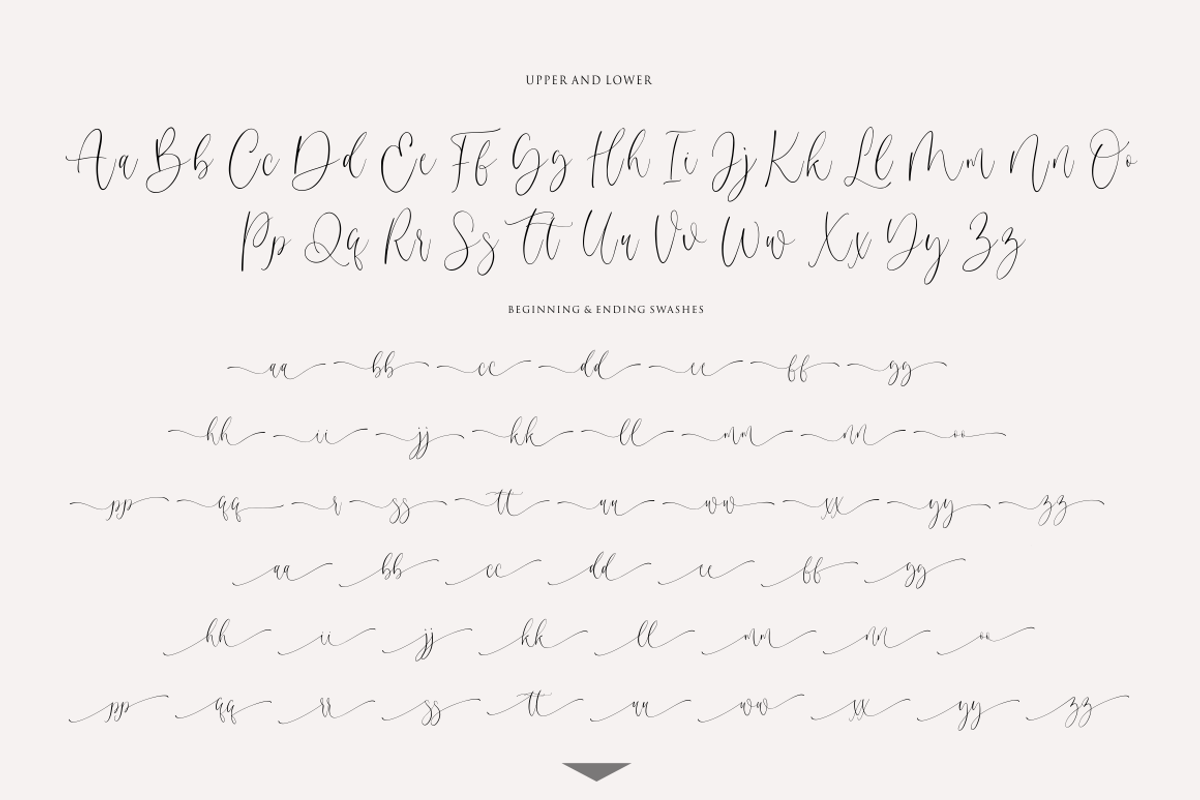 UPPER AND LOWER
Aa Bb Cc Dd Ee Ff Gg Hh Ii Jj Kk Ll Mm Nn Oo
Pp Qq Rr Ss Tt Uu Vv Ww Xx Yy Zz
BEGINNING & ENDING SWASHES
aa bb cc dd ee ff gg
hh ii jj kk ll mm nn oo
pp qq r ss tt uu ww xx yy zz
aa bb cc dd ee ff gg
hh ii jj kk ll mm nn oo
pp qq rr ss tt uu ww xx yy zz